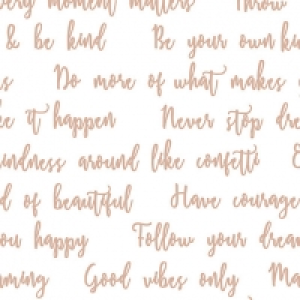 every moment matters Throw
& be kind Be your own
Do more of what makes
it happen Never stop
kindness around like confetti
of beautiful Have courage
you happy Follow your
Good vibes only